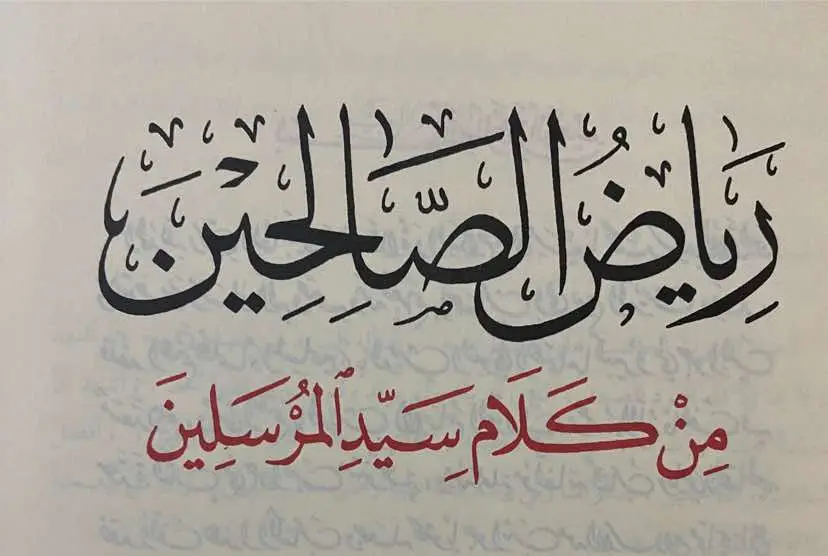 رِيَاضُ الصَّالِحِينَ
مِنْ كَلَامِ سَيِّدِ ٱلْمُرْسَلِينَ